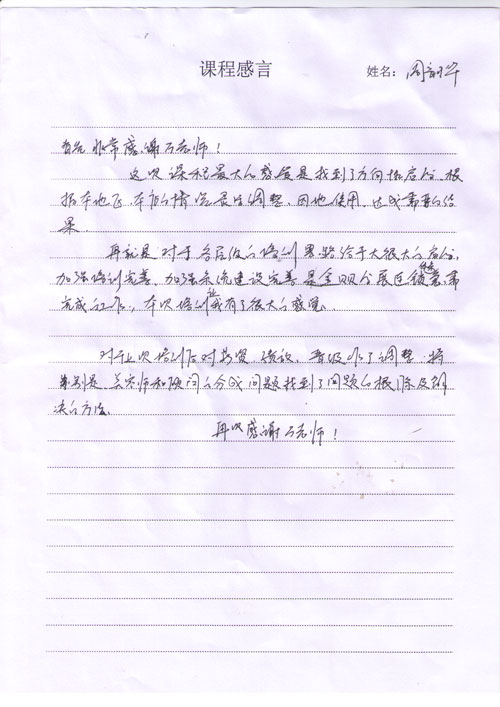 课程感言
姓名：周
首先非常感谢石老师！
这次课程最大的感觉是找到了方向和启分，根
据本地区、本店的情况最生调整，因地使用，达成需要的结
果。
再就是对于各层级的培训思路给于大很大的启分，
加强培训完善，加强系统建设完善是 分展 需
完成的工作，本次培训让我有了很大的感觉。
对于上次培训后对 资、绩效、晋级 了调整，特
别是美容师和顾问的分成问题找到了问题的根源及解
决的方法。
再次感谢石老师！